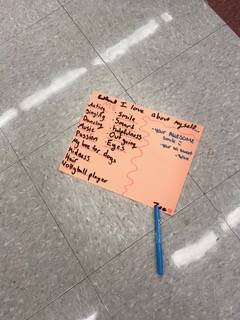 What I love about myself
Acting
Singing
Dancing
Music
Passion
My love for dogs
Kidness
Hair
Vollyball player
Smile
Smart
helpfulness
Out going
Eyes
-Your AWESOME